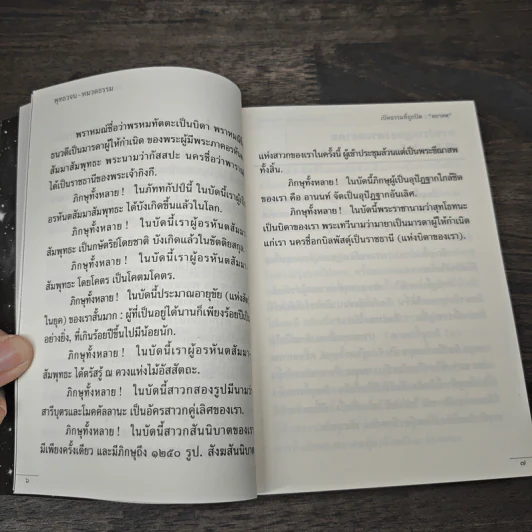 พุทธวจน - หมวดธรรม
พราหมณ์ชื่อว่าพรหมทัตตะเป็นบิดา พราหมณี
ธนวดีเป็นมารดาผู้ให้กำเนิด ของพระผู้มีพระภาคอรหันต-
สัมมาสัมพุทธะ พระนามว่ากัสสปะ นครชื่อว่าพาราณ
ได้เป็นราชธานีของพระเจ้ากิงกี.
ภิกษุทั้งหลาย ! ในภัททกัปป์นี้ ในบัดนี้เราผู้
อรหันตสัมมาสัมพุทธะ ได้บังเกิดขึ้นแล้วในโลก.
ภิกษุทั้งหลาย ! ในบัดนี้เราผู้อรหันตสัมมา
สัมพุทธะ เป็นกษัตริย์โดยชาติ บังเกิดแล้วในขัตติยสกุล.
ภิกษุทั้งหลาย ! ในบัดนี้เราผู้อรหันตสัมมา
สัมพุทธะ โดยโคตร เป็นโคตมโคตร.
ภิกษุทั้งหลาย ! ในบัดนี้ประมาณอายุขัย (แห่งสัต
ในยุค) ของเราสั้นมาก : ผู้ที่เป็นอยู่ได้นานก็เพียงร้อยปี
อย่างยิ่ง, ที่เกินร้อยปีขึ้นไปมีน้อยนัก.
ภิกษุทั้งหลาย ! ในบัดนี้เราผู้อรหันตสัมมา-
สัมพุทธะ ได้ตรัสรู้ ณ ควงแห่งไม้อัสสัตถะ.
ภิกษุทั้งหลาย ! ในบัดนี้สาวกสองรูปมีนามว่า
สารีบุตรและโมคคัลลานะ เป็นอัครสาวกคู่เลิศของเรา.
ภิกษุทั้งหลาย ! ในบัดนี้สาวกสันนิบาตของเรา
มีเพียงครั้งเดียว และมีภิกษุถึง ๑๒๕๐ รูป. สังฆสันนิบาต
๖
เปิดธรรมที่ถูกปิด : "ตถาคต"
แห่งสาวกของเราในครั้งนี้ ผู้เข้าประชุมล้วนแต่เป็นพระขีณาสพ
ทั้งสิ้น.
ภิกษุทั้งหลาย ! ในบัดนี้ภิกษุผู้เป็นอุปัฏฐากใกล้ชิด
ของเรา คือ อานนท์ จัดเป็นอุปัฏฐากอันเลิศ.
ภิกษุทั้งหลาย ! ในบัดนี้พระราชานามว่าสุทโธทนะ
เป็นบิดาของเรา พระเทวีนามว่ามายาเป็นมารดาผู้ให้กำเนิด
แก่เรา นครชื่อกบิลพัสดุ์เป็นราชธานี (แห่งบิดาของเรา).
๗